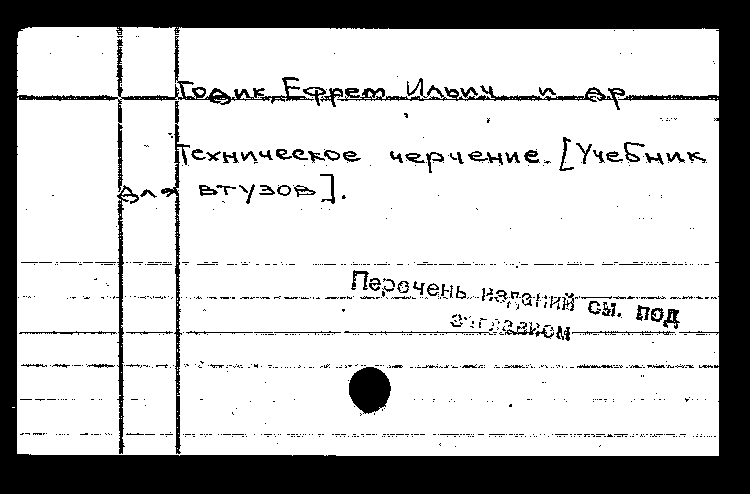 Годик Ефрем Ильич и др
Техническое черчение. [Учебник
для втузов].
Перечень изданий см. под
заглавием